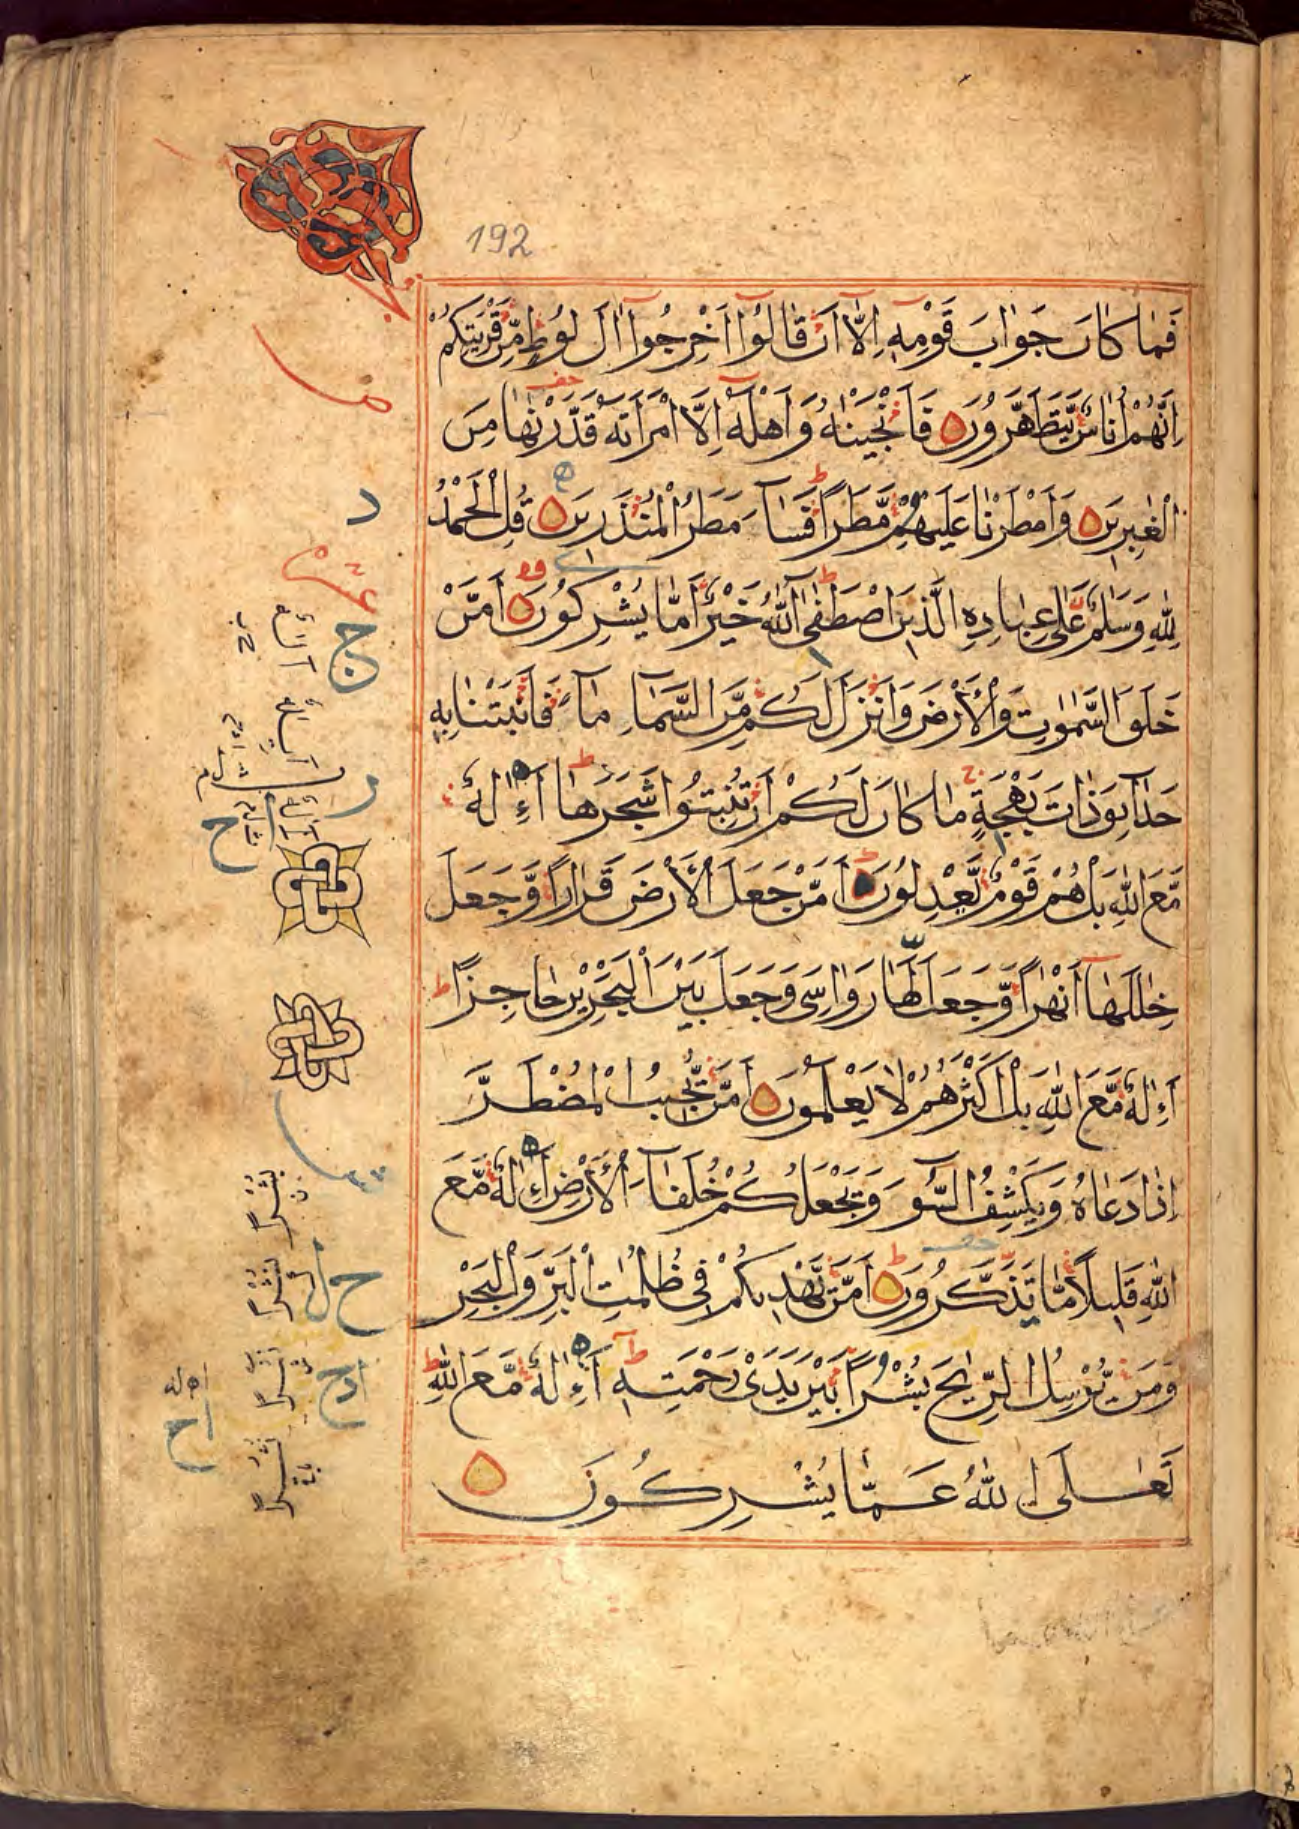 192
فَمَا كَانَ جَوَابَ قَوْمِهِ اِلَّا اَنْ قَالُوا اَخْرِجُوا اٰلَ لُوطٍ مِّنْ قَرْيَتِكُمْ
اِنَّهُمْ اُنَاسٌ يَّتَطَهَّرُونَ فَاَنْجَيْنٰهُ وَاَهْلَهُ اِلَّا امْرَاَتَهُ قَدَّرْنٰهَا مِنَ
الْغٰبِرِينَ وَاَمْطَرْنَا عَلَيْهِمْ مَّطَرًا فَسَاۤءَ مَطَرُ الْمُنْذَرِينَ قُلِ الْحَمْدُ
لِلّٰهِ وَسَلٰمٌ عَلٰى عِبَادِهِ الَّذِينَ اصْطَفٰى اٰۤللّٰهُ خَيْرٌ اَمَّا يُشْرِكُونَ اَمَّنْ
خَلَقَ السَّمٰوٰتِ وَالْاَرْضَ وَاَنْزَلَ لَكُمْ مِّنَ السَّمَاۤءِ مَاۤءً فَاَنْبَتْنَا بِهِ
حَدَاۤئِقَ ذَاتَ بَهْجَةٍ مَا كَانَ لَكُمْ اَنْ تُنْبِتُوا شَجَرَهَا اَءِلٰهٌ
مَّعَ اللّٰهِ بَلْ هُمْ قَوْمٌ يَّعْدِلُونَ اَمَّنْ جَعَلَ الْاَرْضَ قَرَارًا وَّجَعَلَ
خِلٰلَهَا اَنْهٰرًا وَّجَعَلَ لَهَا رَوَاسِيَ وَجَعَلَ بَيْنَ الْبَحْرَيْنِ حَاجِزًا
اَءِلٰهٌ مَّعَ اللّٰهِ بَلْ اَكْثَرُهُمْ لَا يَعْلَمُونَ اَمَّنْ يُّجِيبُ الْمُضْطَرَّ
اِذَا دَعَاهُ وَيَكْشِفُ السُّوۤءَ وَيَجْعَلُكُمْ خُلَفَاۤءَ الْاَرْضِ اَءِلٰهٌ مَّعَ
اللّٰهِ قَلِيلًا مَّا تَذَّكَّرُونَ اَمَّنْ يَّهْدِيكُمْ فِي ظُلُمٰتِ الْبَرِّ وَالْبَحْرِ
وَمَنْ يُّرْسِلُ الرِّيٰحَ بُشْرًا بَيْنَ يَدَيْ رَحْمَتِهِ اَءِلٰهٌ مَّعَ اللّٰهِ
تَعَالَى اللّٰهُ عَمَّا يُشْرِكُونَ